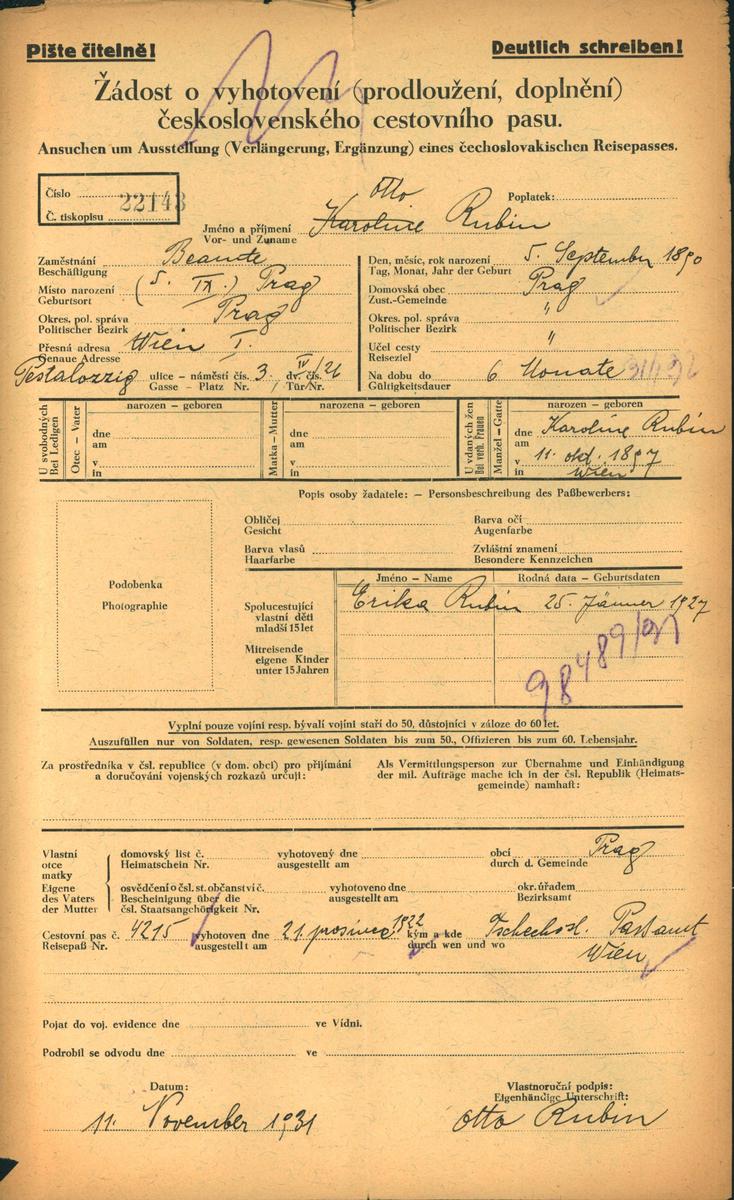 Pište čitelně!
Deutlich schreiben!
Žádost o vyhotovení (prodloužení, doplnění)
československého cestovního pasu.
Ansuchen um Ausstellung (Verlängerung, Ergänzung) eines čechoslovakischen Reisepasses.
Číslo
22143
Č. tiskopisu
Poplatek:
Otto
Jméno a příjmení Karoline Rubin
Vor- und Zuname
Zaměstnání Beamte
Beschäftigung
Místo narození (5. IX.) Prag
Geburtsort
Okres. pol. správa Prag
Politischer Bezirk
Přesná adresa Wien I.
Genaue Adresse
Pestalozzig ulice – náměstí čís. 3, dv. čís. IV/26
Gasse – Platz Nr. Tür/Nr.
Den, měsíc, rok narození 5. September 1890
Tag, Monat, Jahr der Geburt
Domovská obec Prag
Zust.-Gemeinde
Okres. pol. správa "
Politischer Bezirk
Účel cesty "
Reiseziel
Na dobu do 6 Monate
Gültigkeitsdauer
U svobodných
Bei Ledigen
Otec – Vater
narozen – geboren
dne
am
v
in
Matka – Mutter
narozena – geboren
dne
am
v
in
U vdaných žen
Bei verh. Frauen
Manžel – Gatte
narozen – geboren
dne Karoline Rubin
am
11. okt. 1897
v
in Wien
Popis osoby žadatele: – Personsbeschreibung des Paßbewerbers:
Podobenka
Photographie
Obličej
Gesicht
Barva očí
Augenfarbe
Barva vlasů
Haarfarbe
Zvláštní znamení
Besondere Kennzeichen
Jméno – Name
Rodná data – Geburtsdaten
Spolucestující
vlastní děti
mladší 15 let
Erika Rubin 25. Jänner 1927
Mitreisende
eigene Kinder
unter 15 Jahren
98489/31
Vyplní pouze vojíni resp. bývalí vojíni staří do 50, důstojníci v záloze do 60 let.
Auszufüllen nur von Soldaten, resp. gewesenen Soldaten bis zum 50., Offizieren bis zum 60. Lebensjahr.
Za prostředníka v čsl. republice (v dom. obci) pro přijímání
a doručování vojenských rozkazů určuji:
Als Vermittlungsperson zur Übernahme und Einhändigung
der mil. Aufträge mache ich in der čsl. Republik (Heimats-
gemeinde) namhaft:
Vlastní
otce
matky
Eigene
des Vaters
der Mutter
domovský list č. vyhotovený dne obcí Prag
Heimatschein Nr. ausgestellt am durch d. Gemeinde
osvědčení o čsl. st. občanství č. vyhotoveno dne okr. úřadem
Bescheinigung über die ausgestellt am Bezirksamt
čsl. Staatsangehörigkeit Nr.
Cestovní pas č. 4215 vyhotoven dne 21. prosince 1922 kým a kde Tschechosl. Passamt
Reisepaß Nr. ausgestellt am durch wen und wo Wien
Pojat do voj. evidence dne ve Vídni.
Podrobil se odvodu dne ve
Datum:
11. November 1931
Vlastnoruční podpis:
Eigenhändige Unterschrift:
Otto Rubin